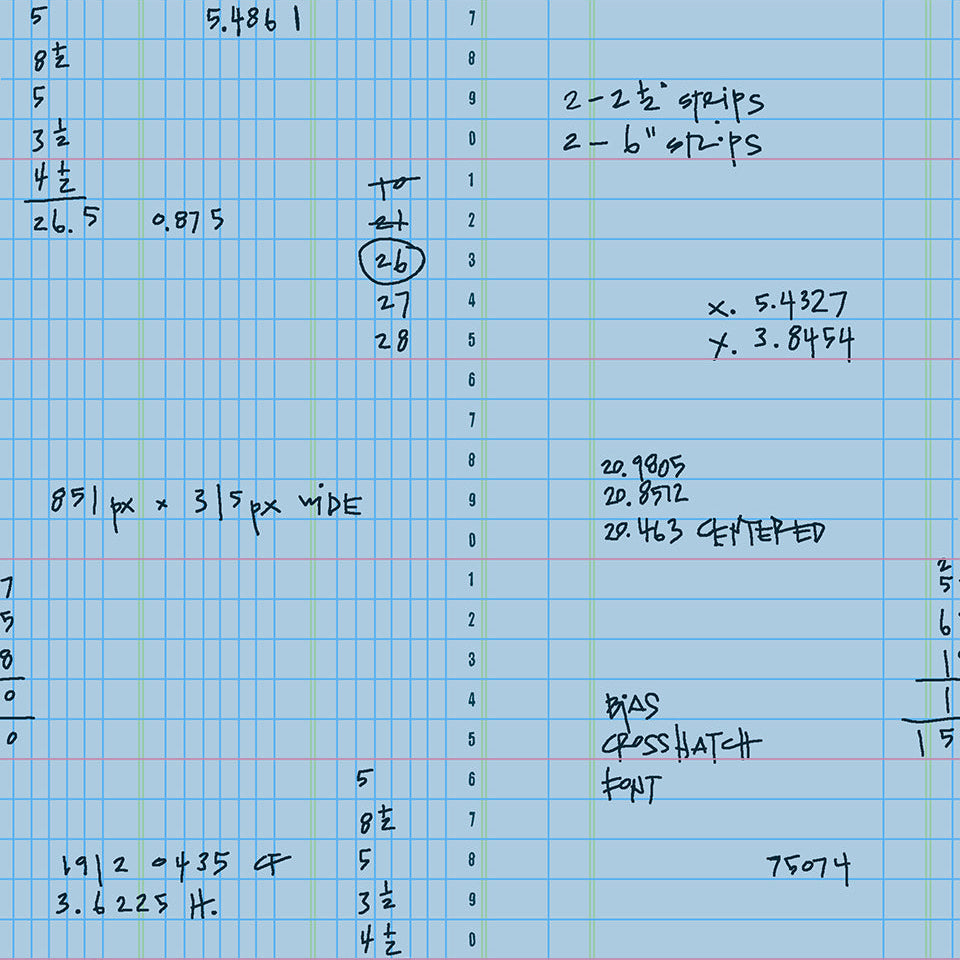 5 5.4861 7
8 1/2 8
5 9 2-2 1/2" strips
3 1/2 0 2-6" strips
4 1/2 10 1
26.5 0.875 21 2
26 3
27 4 x. 5.4327
28 5 Y. 3.8454
6
7
8 20.9805
851px x 315px WIDE 9 20.8512
0 20.463 CENTERED
7 1 2
5
5 2 6
8 3 1
0 4 BIAS 1
0 5 CROSSHATCH 15
5 6 FONT
8 1/2 7
1912 0435 CF 5 8 75074
3.6225 H. 3 1/2 9
4 1/2 0